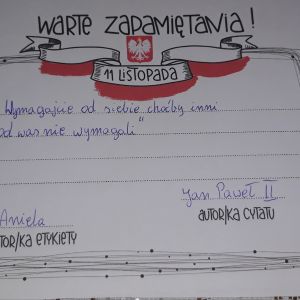 WARTE ZAPAMIĘTANIA!
11 LISTOPADA
Wymagajcie od siebie choćby inni
od was nie wymagali"
Jan Paweł II
AUTOR/KA CYTATU
Aniela
TOR/KA ETYKIETY